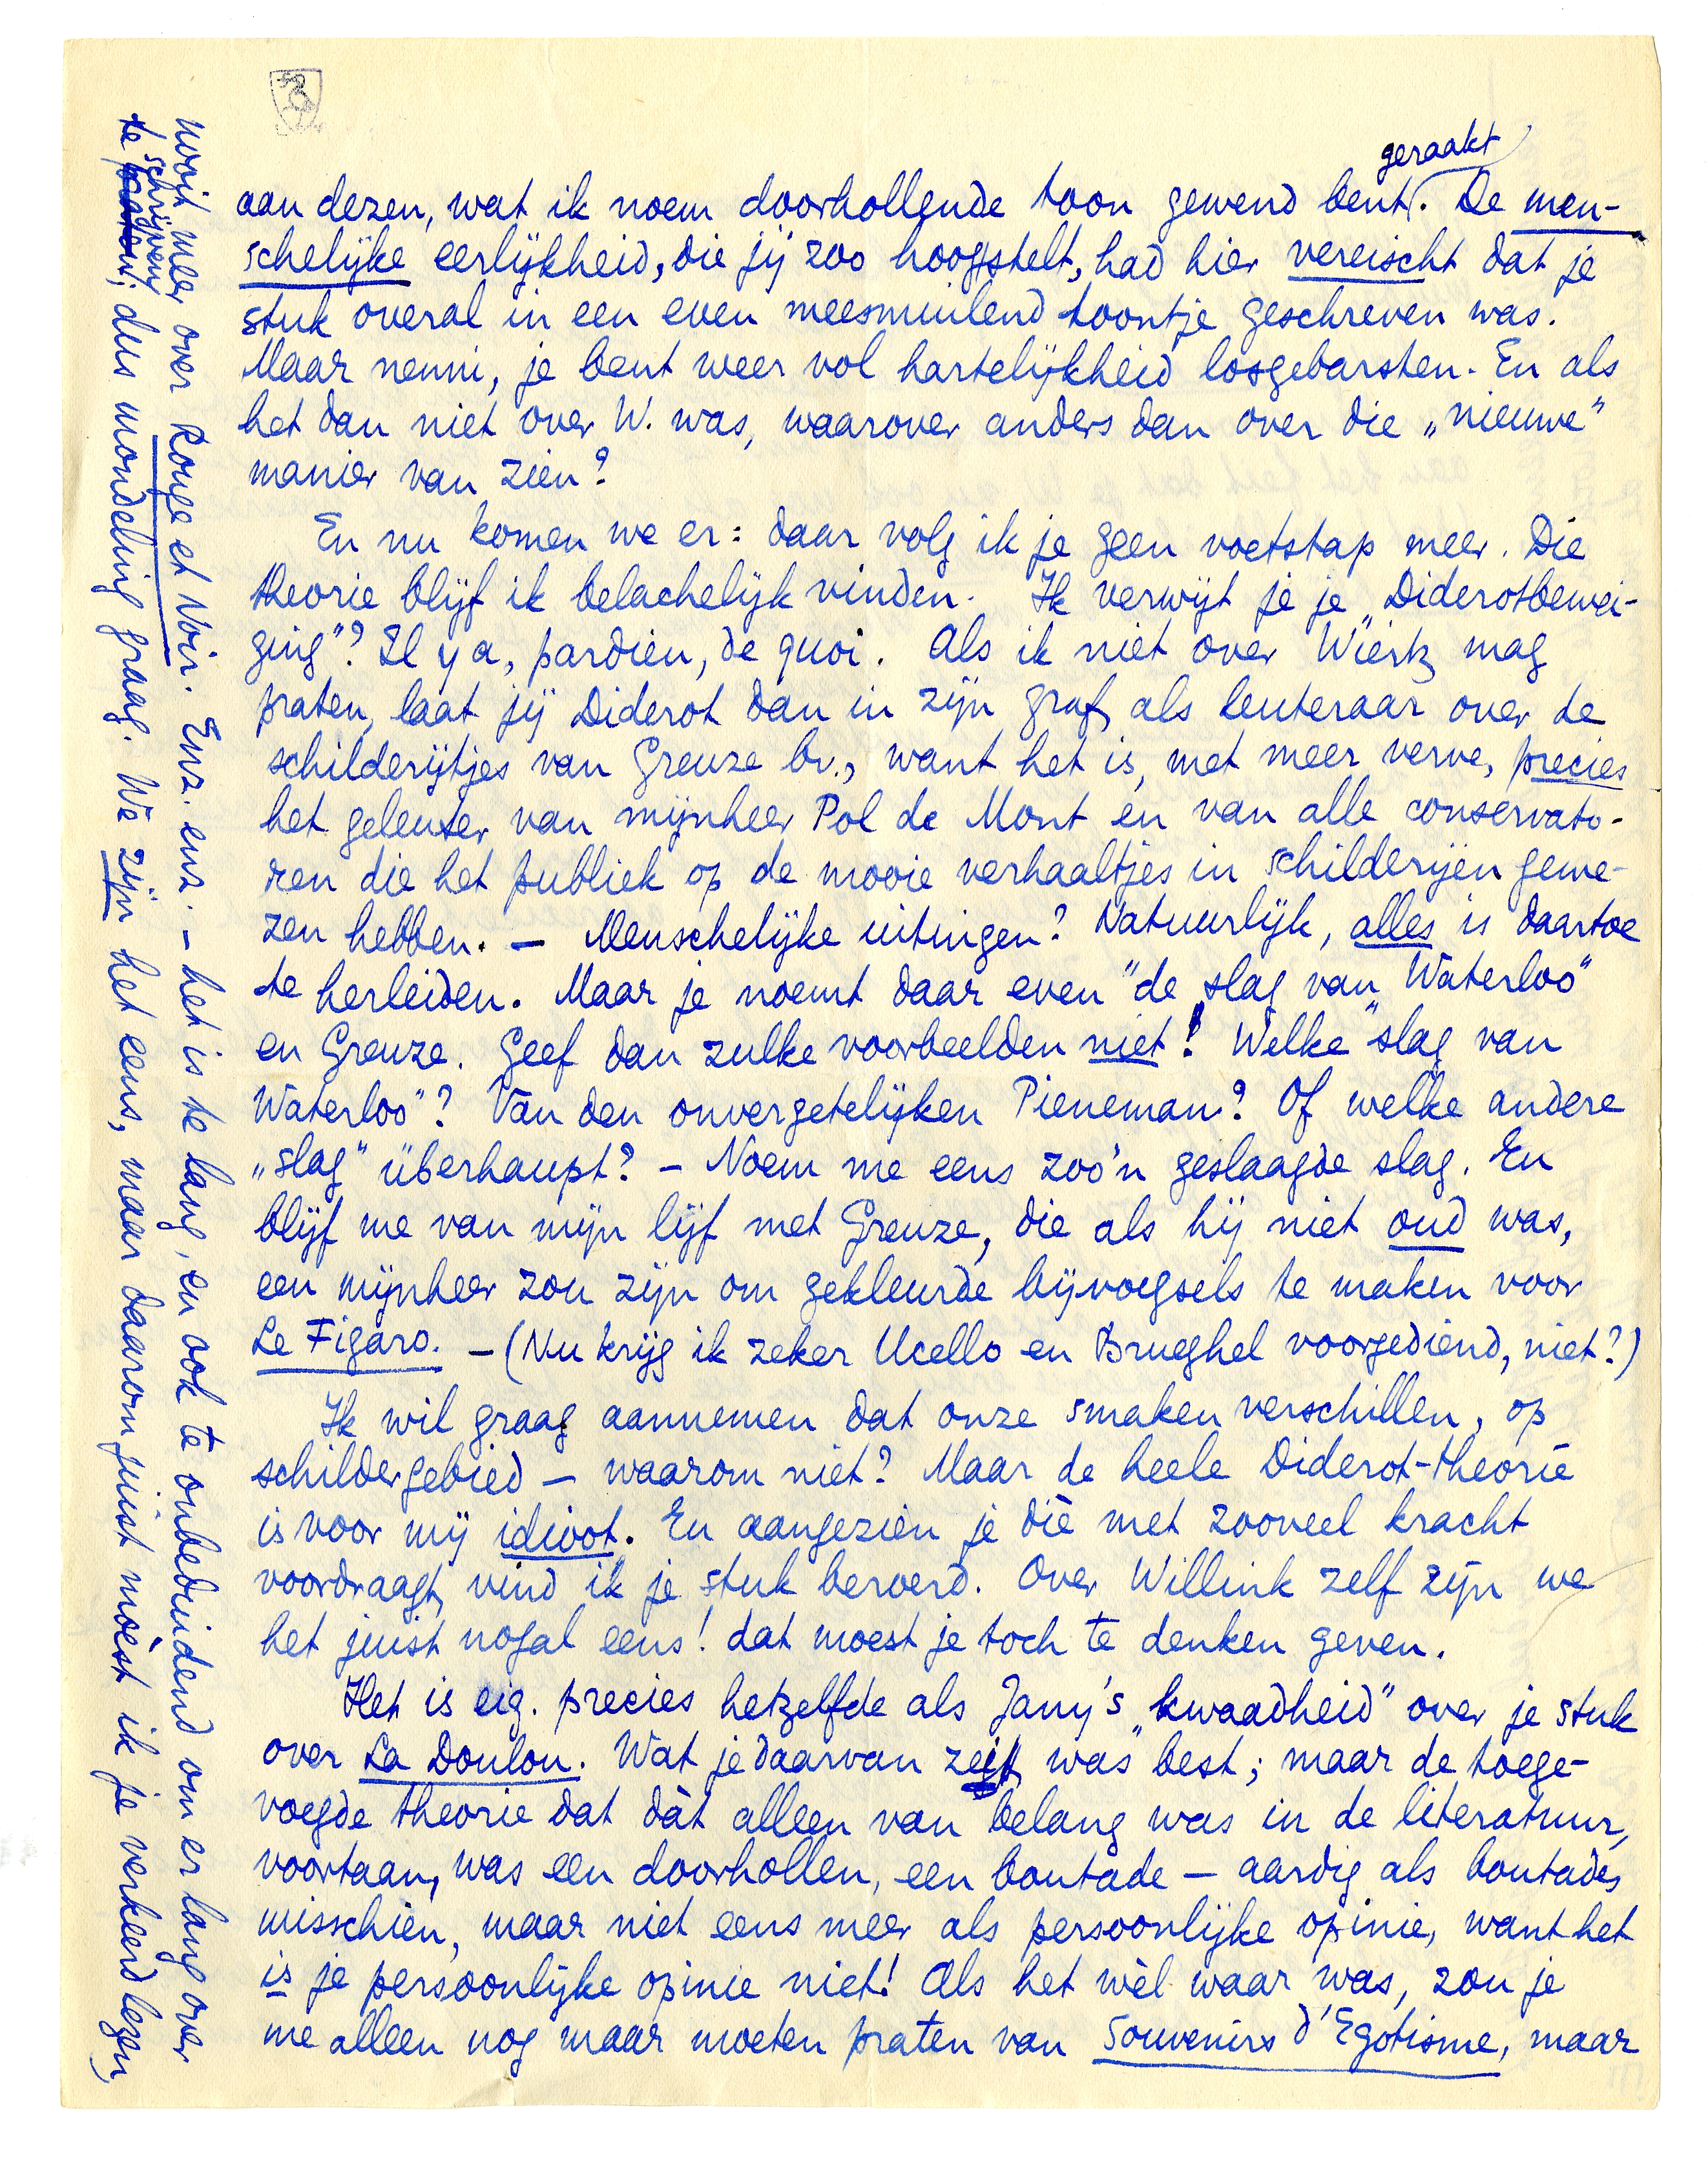 geraakt
aan dezen, wat ik noem doorhollende toon gewend bent. De men-
schelijke eerlijkheid, die jij zoo hoogstelt, had hier vereischt dat je
stuk overal in een even meesmuilend toontje geschreven was.
Maar nenni, je bent weer vol hartelijkheid losgebarsten. En als
het dan niet over W. was, waarover anders dan over die „nieuwe"
manier van zien?
En nu komen we er: daar volg ik je geen voetstap meer. Die
theorie blijf ik belachelijk vinden. Ik verwijt je je „Diderotbewei-
ging"? Il y a, pardieu, de quoi. Als ik niet over Wiertz mag
praten, laat jij Diderot dan in zijn graf, als leuteraar over de
schilderijtjes van Greuze bv., want het is, met meer verve, precies
het geleuter van mijnheer Pol de Mont en van alle conservato-
ren die het publiek op de mooie verhaaltjes in schilderijen gewe-
zen hebben. — Menschelijke uitingen? Natuurlijk, alles is daartoe
te herleiden. Maar je noemt daar even "de slag van Waterloo"
en Greuze. Geef dan zulke voorbeelden niet! Welke "slag van
Waterloo"? Van den onvergetelijken Pieneman? Of welke andere
„slag" überhaupt? — Noem me eens zoo'n geslaagde slag. En
blijf me van mijn lijf met Greuze, die als hij niet oud was,
een mijnheer zou zijn om gekleurde bijvoegsels te maken voor
Le Figaro. — (Nu krijg ik zeker Ucello en Brueghel voorgediend, niet?)
Ik wil graag aannemen dat onze smaken verschillen, op
schildergebied — waarom niet? Maar de heele Diderot-theorie
is voor mij idioot. En aangezien je díe met zooveel kracht
voordraagt, vind ik je stuk beroerd. Over Willink zelf zijn we
het juist nogal eens! dat moest je toch te denken geven.
Het is eig. precies hetzelfde als Jany's „kwaadheid" over je stuk
over La Doulou. Wat je daarvan zeit, was best; maar de toege-
voegde theorie dat dàt alleen van belang was in de literatuur,
voortaan, was een doorhollen, een boutade — aardig als boutades
misschien, maar niet eens meer als persoonlijke opinie, want het
is je persoonlijke opinie niet! Als het wèl waar was, zou je
me alleen nog maar moeten praten van Souvenirs d'Egotisme, maar
nooit meer over Rouge et Noir. Enz. enz. — het is te lang, en ook te onbeduidend om er lang over
te schrijven; dus mondeling graag. We zijn het eens, maar daarom juist moèst ik je verkeerd lezen,